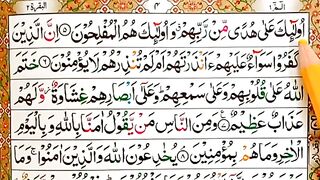 الٓمّٓ ١
٤
البقرة ٢
اُولٰٓئِكَ عَلٰى هُدًى مِّنْ رَّبِّهِمْ ۙ وَاُولٰٓئِكَ هُمُ الْمُفْلِحُوْنَ ۝٥ اِنَّ الَّذِيْنَ
كَفَرُوْا سَوَآءٌ عَلَيْهِمْ ءَاَنْذَرْتَهُمْ اَمْ لَمْ تُنْذِرْهُمْ لَا يُؤْمِنُوْنَ ۝٦ خَتَمَ
اللّٰهُ عَلٰى قُلُوْبِهِمْ وَعَلٰى سَمْعِهِمْ ؕ وَعَلٰٓى اَبْصَارِهِمْ غِشَاوَةٌ ۫ وَّلَهُمْ
عَذَابٌ عَظِيْمٌ ۝٧ وَمِنَ النَّاسِ مَنْ يَّقُوْلُ اٰمَنَّا بِاللّٰهِ وَبِالْيَوْمِ
الْاٰخِرِ وَمَا هُمْ بِمُؤْمِنِيْنَ ۝٨ يُخٰدِعُوْنَ اللّٰهَ وَالَّذِيْنَ اٰمَنُوْا ۚ وَمَا